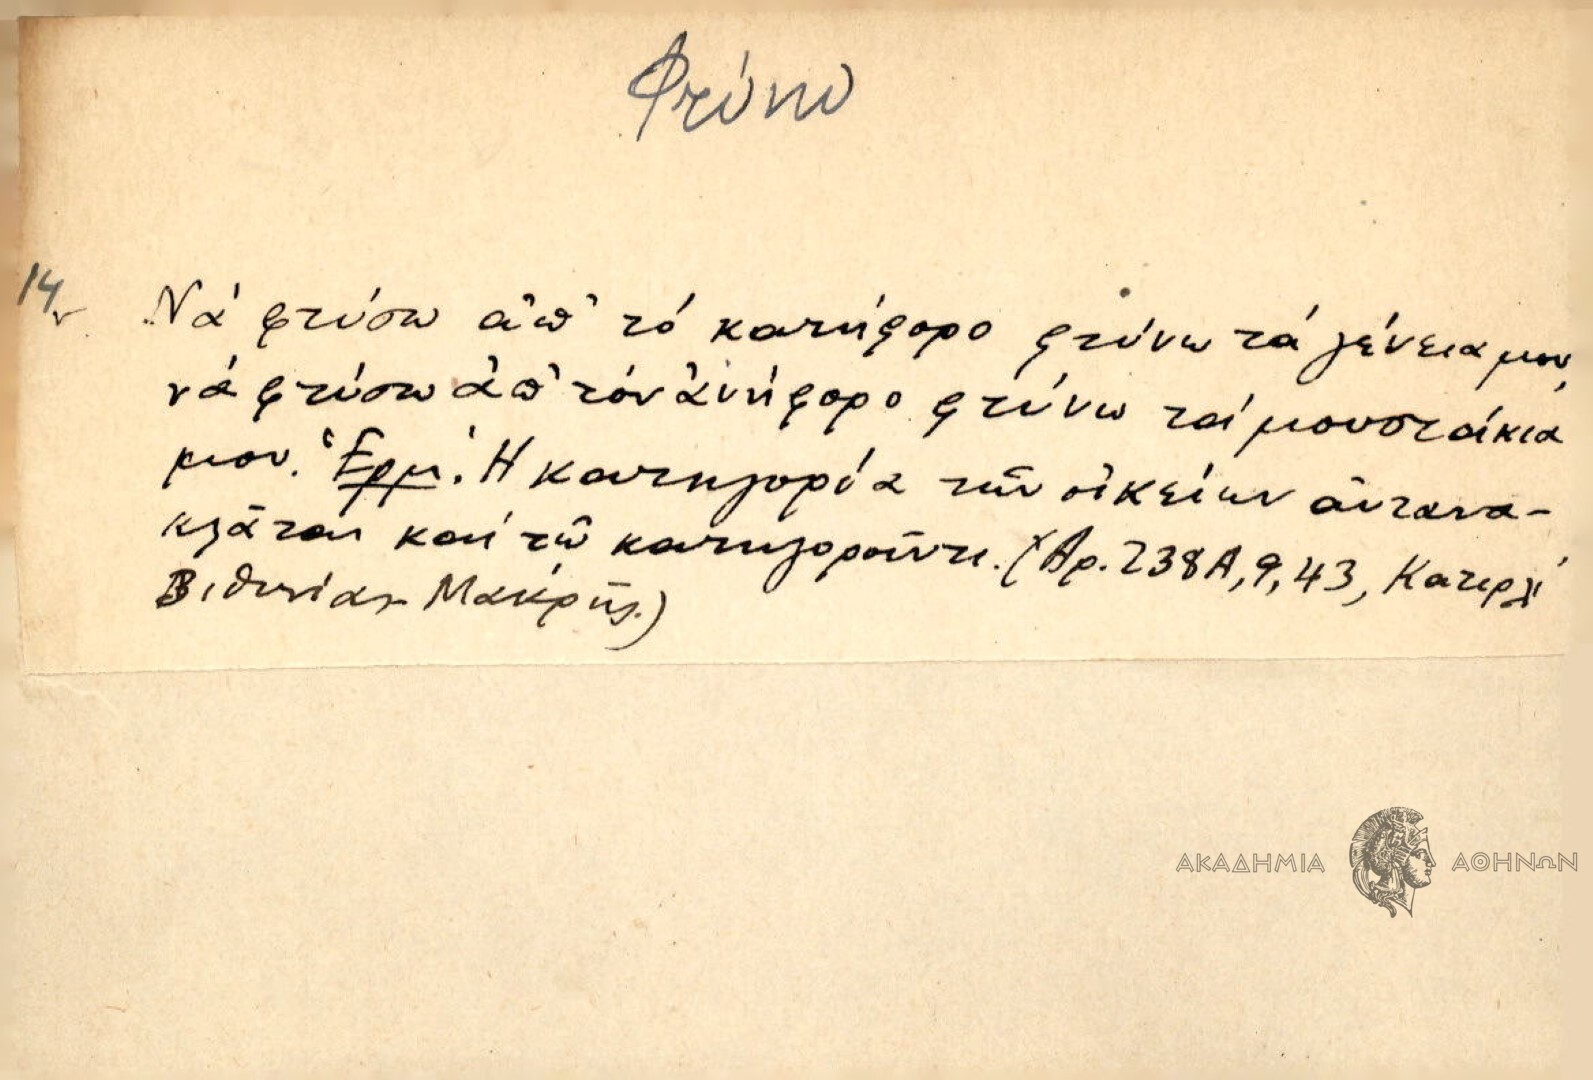 Φτύνω
14
Νά φτύσω ἀπ' τό κατήφορο φτύνω τά γένεια μου,
νά φτύσω ἀπ' τόν ἀνήφορο φτύνω τά μουστάκια
μου. Ἑρμ. Ἡ κατηγορία τῶν οἰκείων ἀντανα-
κλᾶται καί τῷ κατηγοροῦντι. (Ἀρ. 238Α, 9, 43, Κατιρλί
Βιθυνίας Μακρῆς.)
ΑΚΑΔΗΜΙΑ ΑΘΗΝΩΝ